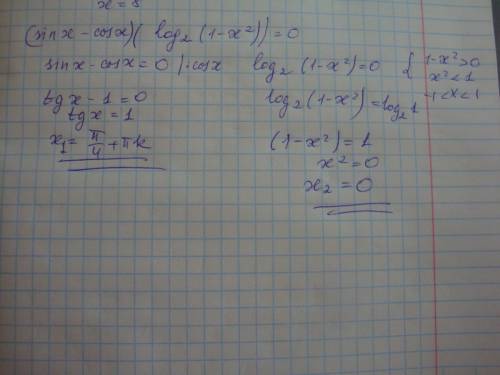 x = 8
(sin x - cos x)( log₂ (1-x²)) = 0
sin x - cos x = 0 | · cos x
tg x - 1 = 0
tg x = 1
x₁ = π/4 + πk
log₂ (1-x²) = 0
log₂ (1-x²) = log₂ 1
(1-x²) = 1
x² = 0
x₂ = 0
{ 1-x² > 0
x² < 1
-1 < x < 1